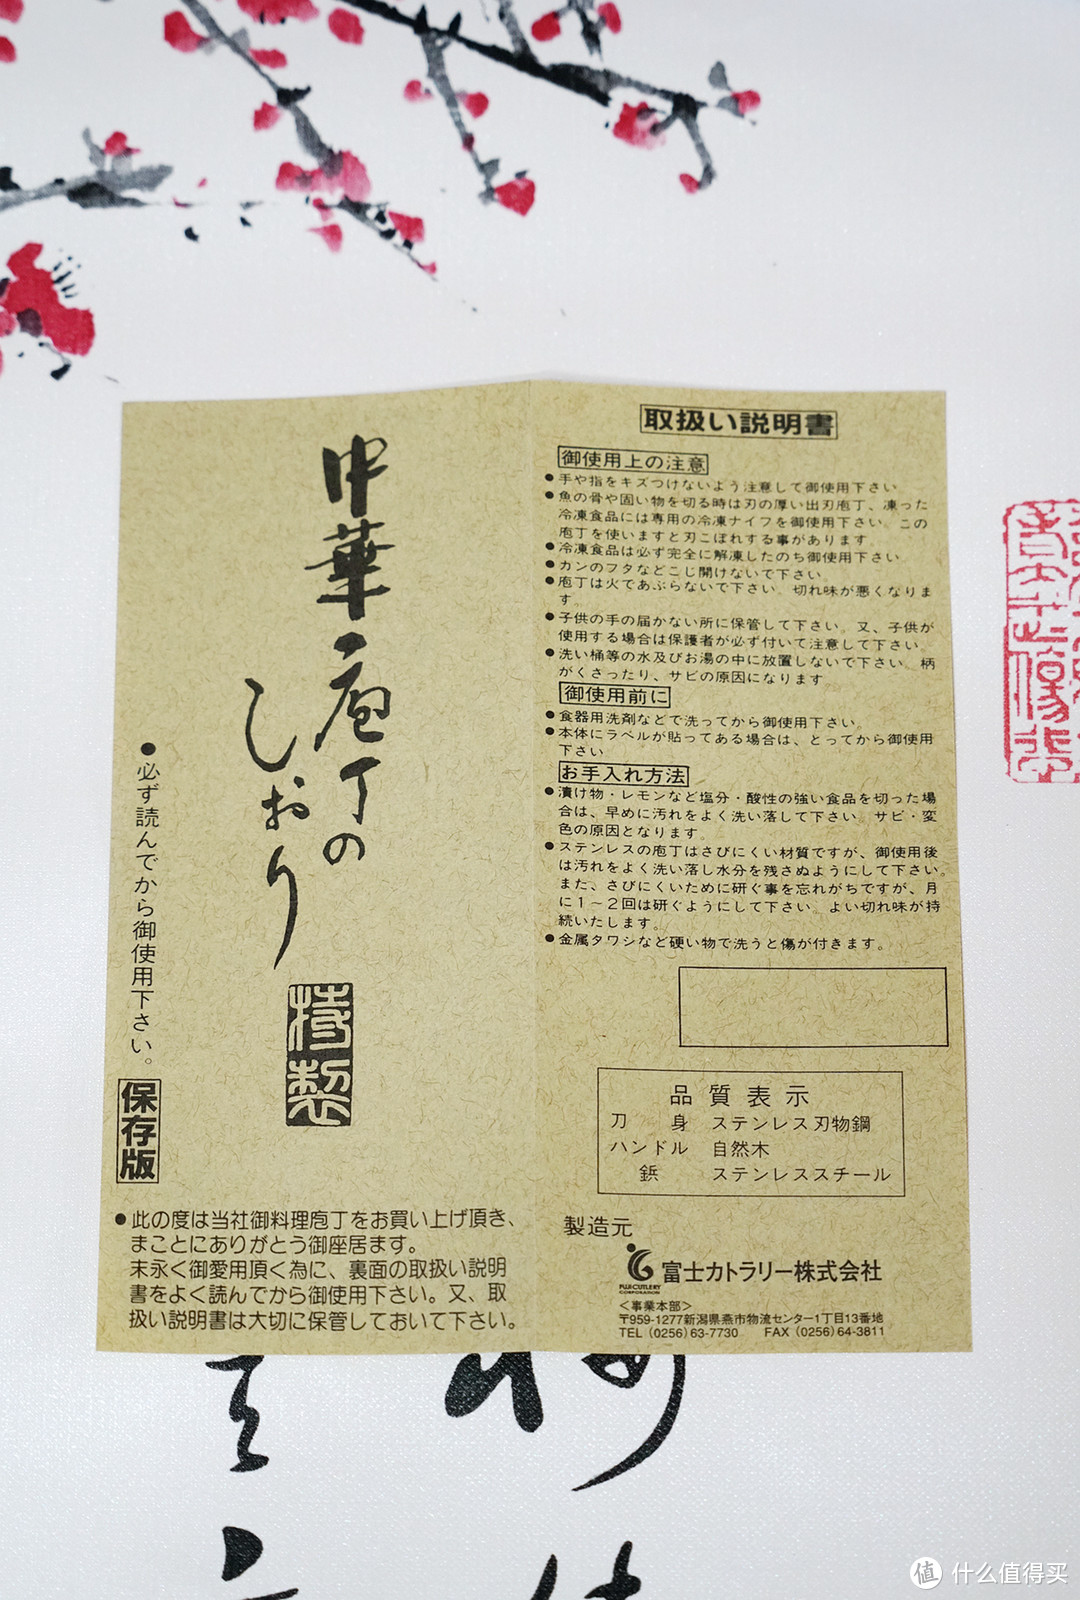 中華庖丁の
しおり
特製
●必ず読んでから御使用下さい。
保存版
●此の度は当社御料理庖丁をお買い上げ頂き、
まことにありがとう御座居ます。
末永く御愛用頂く為に、裏面の取扱い説明
書をよく読んでから御使用下さい。又、取
扱い説明書は大切に保管しておいて下さい。
取扱い説明書
御使用上の注意
●手や指をキズつけないよう注意して御使用下さい
●魚の骨や固い物を切る時は刃の厚い出刃庖丁、凍った
冷凍食品には専用の冷凍ナイフを御使用下さい。この
庖丁を使いますと刃こぼれする事があります。
●冷凍食品は必ず完全に解凍したのち御使用下さい
●カンのフタなどこじ開けないで下さい。
●庖丁は火であぶらないで下さい。切れ味が悪くなりま
す。
●子供の手の届かない所に保管して下さい。又、子供が
使用する場合は保護者が必ず付いて注意して下さい。
●洗い桶等の水及びお湯の中に放置しないで下さい。柄
がくさったり、サビの原因になります
御使用前に
●食器用洗剤などで洗ってから御使用下さい。
●本体にラベルが貼ってある場合は、とってから御使用
下さい
お手入れ方法
●漬け物・レモンなど塩分・酸性の強い食品を切った場
合は、早めに汚れをよく洗い落して下さい。サビ・変
色の原因となります。
●ステンレスの庖丁はさびにくい材質ですが、御使用後
は汚れをよく洗い落し水分を残さぬようにして下さい。
また、さびにくいために研ぐ事を忘れがちですが、月
に1～2回は研ぐようにして下さい。よい切れ味が持
続いたします。
●金属タワシなど硬い物で洗うと傷が付きます。
品質表示
刀身 ステンレス刃物鋼
ハンドル 自然木
鋲 ステンレススチール
製造元
FUJI CUTLERY CORPORATION
富士カトラリー株式会社
＜事業本部＞
〒959-1277新潟県燕市物流センター1丁目13番地
TEL (0256) 63-7730 FAX (0256) 64-3811
值 什么值得买